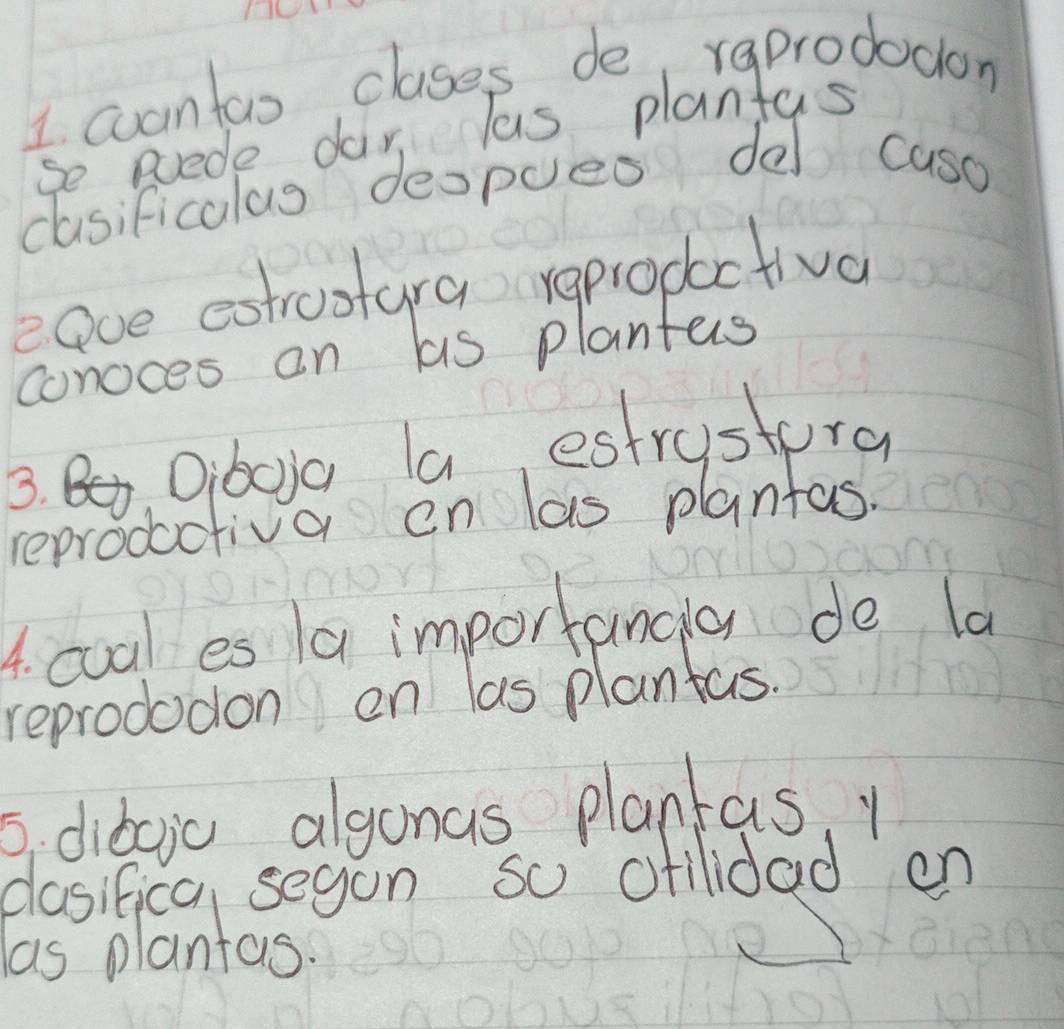 1. Cuantas clases de reproducion
se puede dar las plantas
clasificalas despues del caso
2. Que estrustura reproductiva
conoces en las plantas
3. Dibuja la estrustura
reproductiva en las plantas.
4. cual es la importancia de la
reproducion en las plantas.
5. dibuja algunas plantas, y
clasifica segun su utilidad en
las plantas.